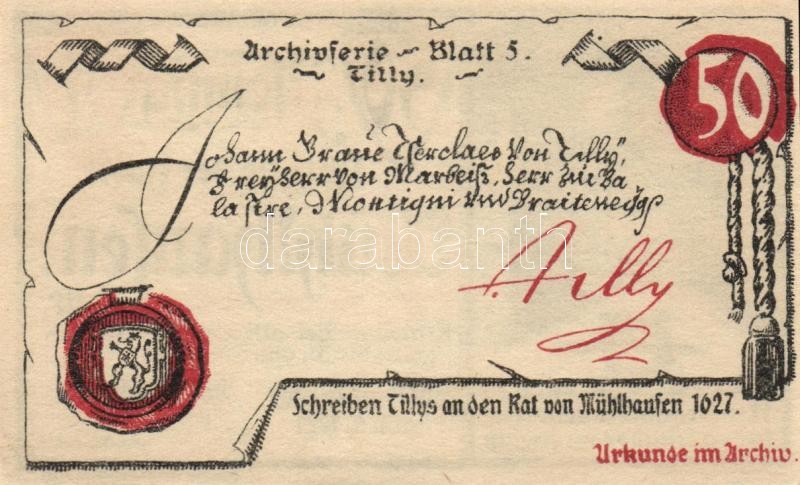 Archivserie ~ Blatt 5.
~ Tilly. ~
50
Johann Graue Tserclaes von Tilly,
Freyherr von Marbeiß, Herr zue Ba
lastre, Montigni und Braitenegg
Tilly
darabanth
Schreiben Tillys an den Rat von Mühlhausen 1627.
Urkunde im Archiv.